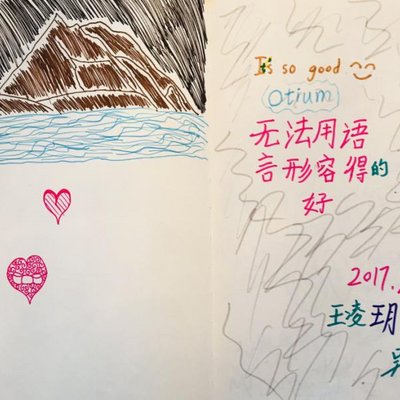 It's so good
Otium
无法用语
言形容得的
好
2017.
王凌玥